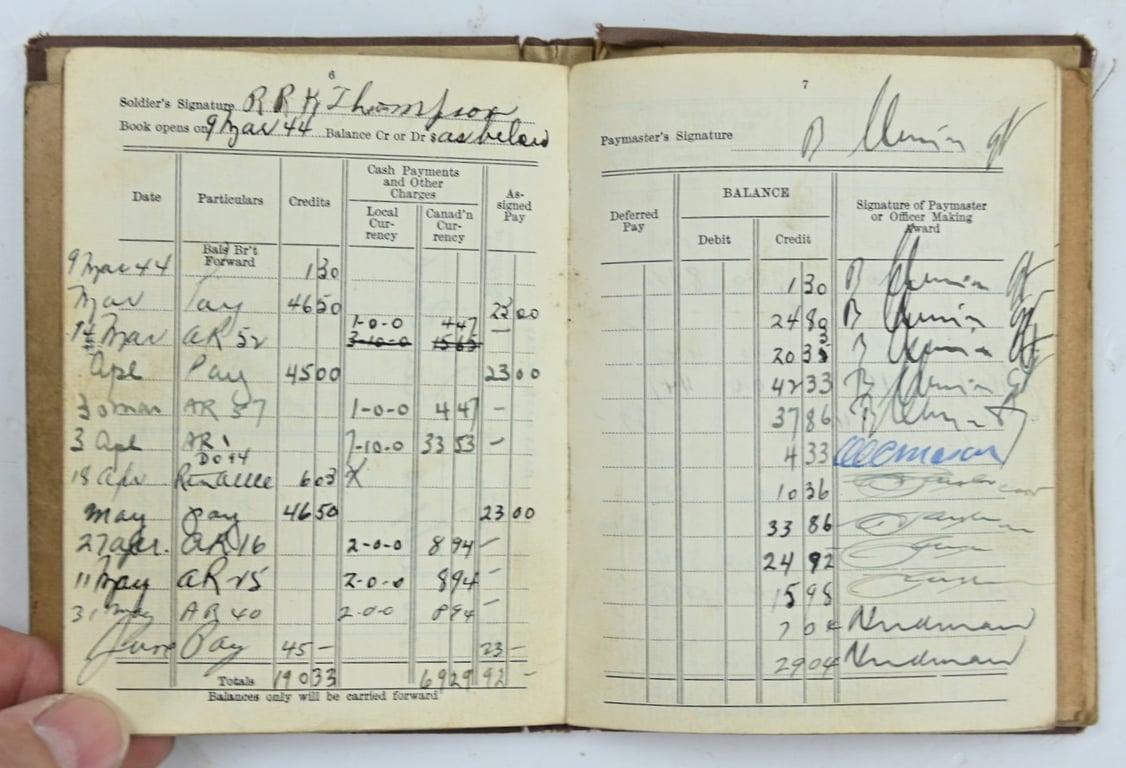 6
Soldier's Signature R R K Thompson
Book opens on 9 Mar 44 Balance Cr or Dr $ as below
Date Particulars Credits Cash Payments and Other Charges Local Cur-rency Canad'n Cur-rency As-signed Pay
9 Mar 44 Bals Br't Forward 1 30
Mar Pay 46 50 23 00
14 Mar AR 52 1-0-0 4 47 —
3-10-0 15 65
Apl Pay 45 00 23 00
30 Mar AR 57 1-0-0 4 47 —
3 Apl AR 1 7-10-0 33 53 —
18 Apr 6 03 X
May Pay 46 50 23 00
27 Apr. AR 16 2-0-0 8 94 —
11 May AR 25 2-0-0 8 94 —
31 May AR 40 2-0-0 8 94 —
June Pay 45 — 23 —
Totals 190 33 69 29 92 —
Balances only will be carried forward
7
Paymaster's Signature
Deferred Pay BALANCE Debit Credit Signature of Paymaster or Officer Making Award
1 30
24 80
20 33
42 33
37 86
4 33
10 36
33 86
24 92
15 98
7 04
29 04